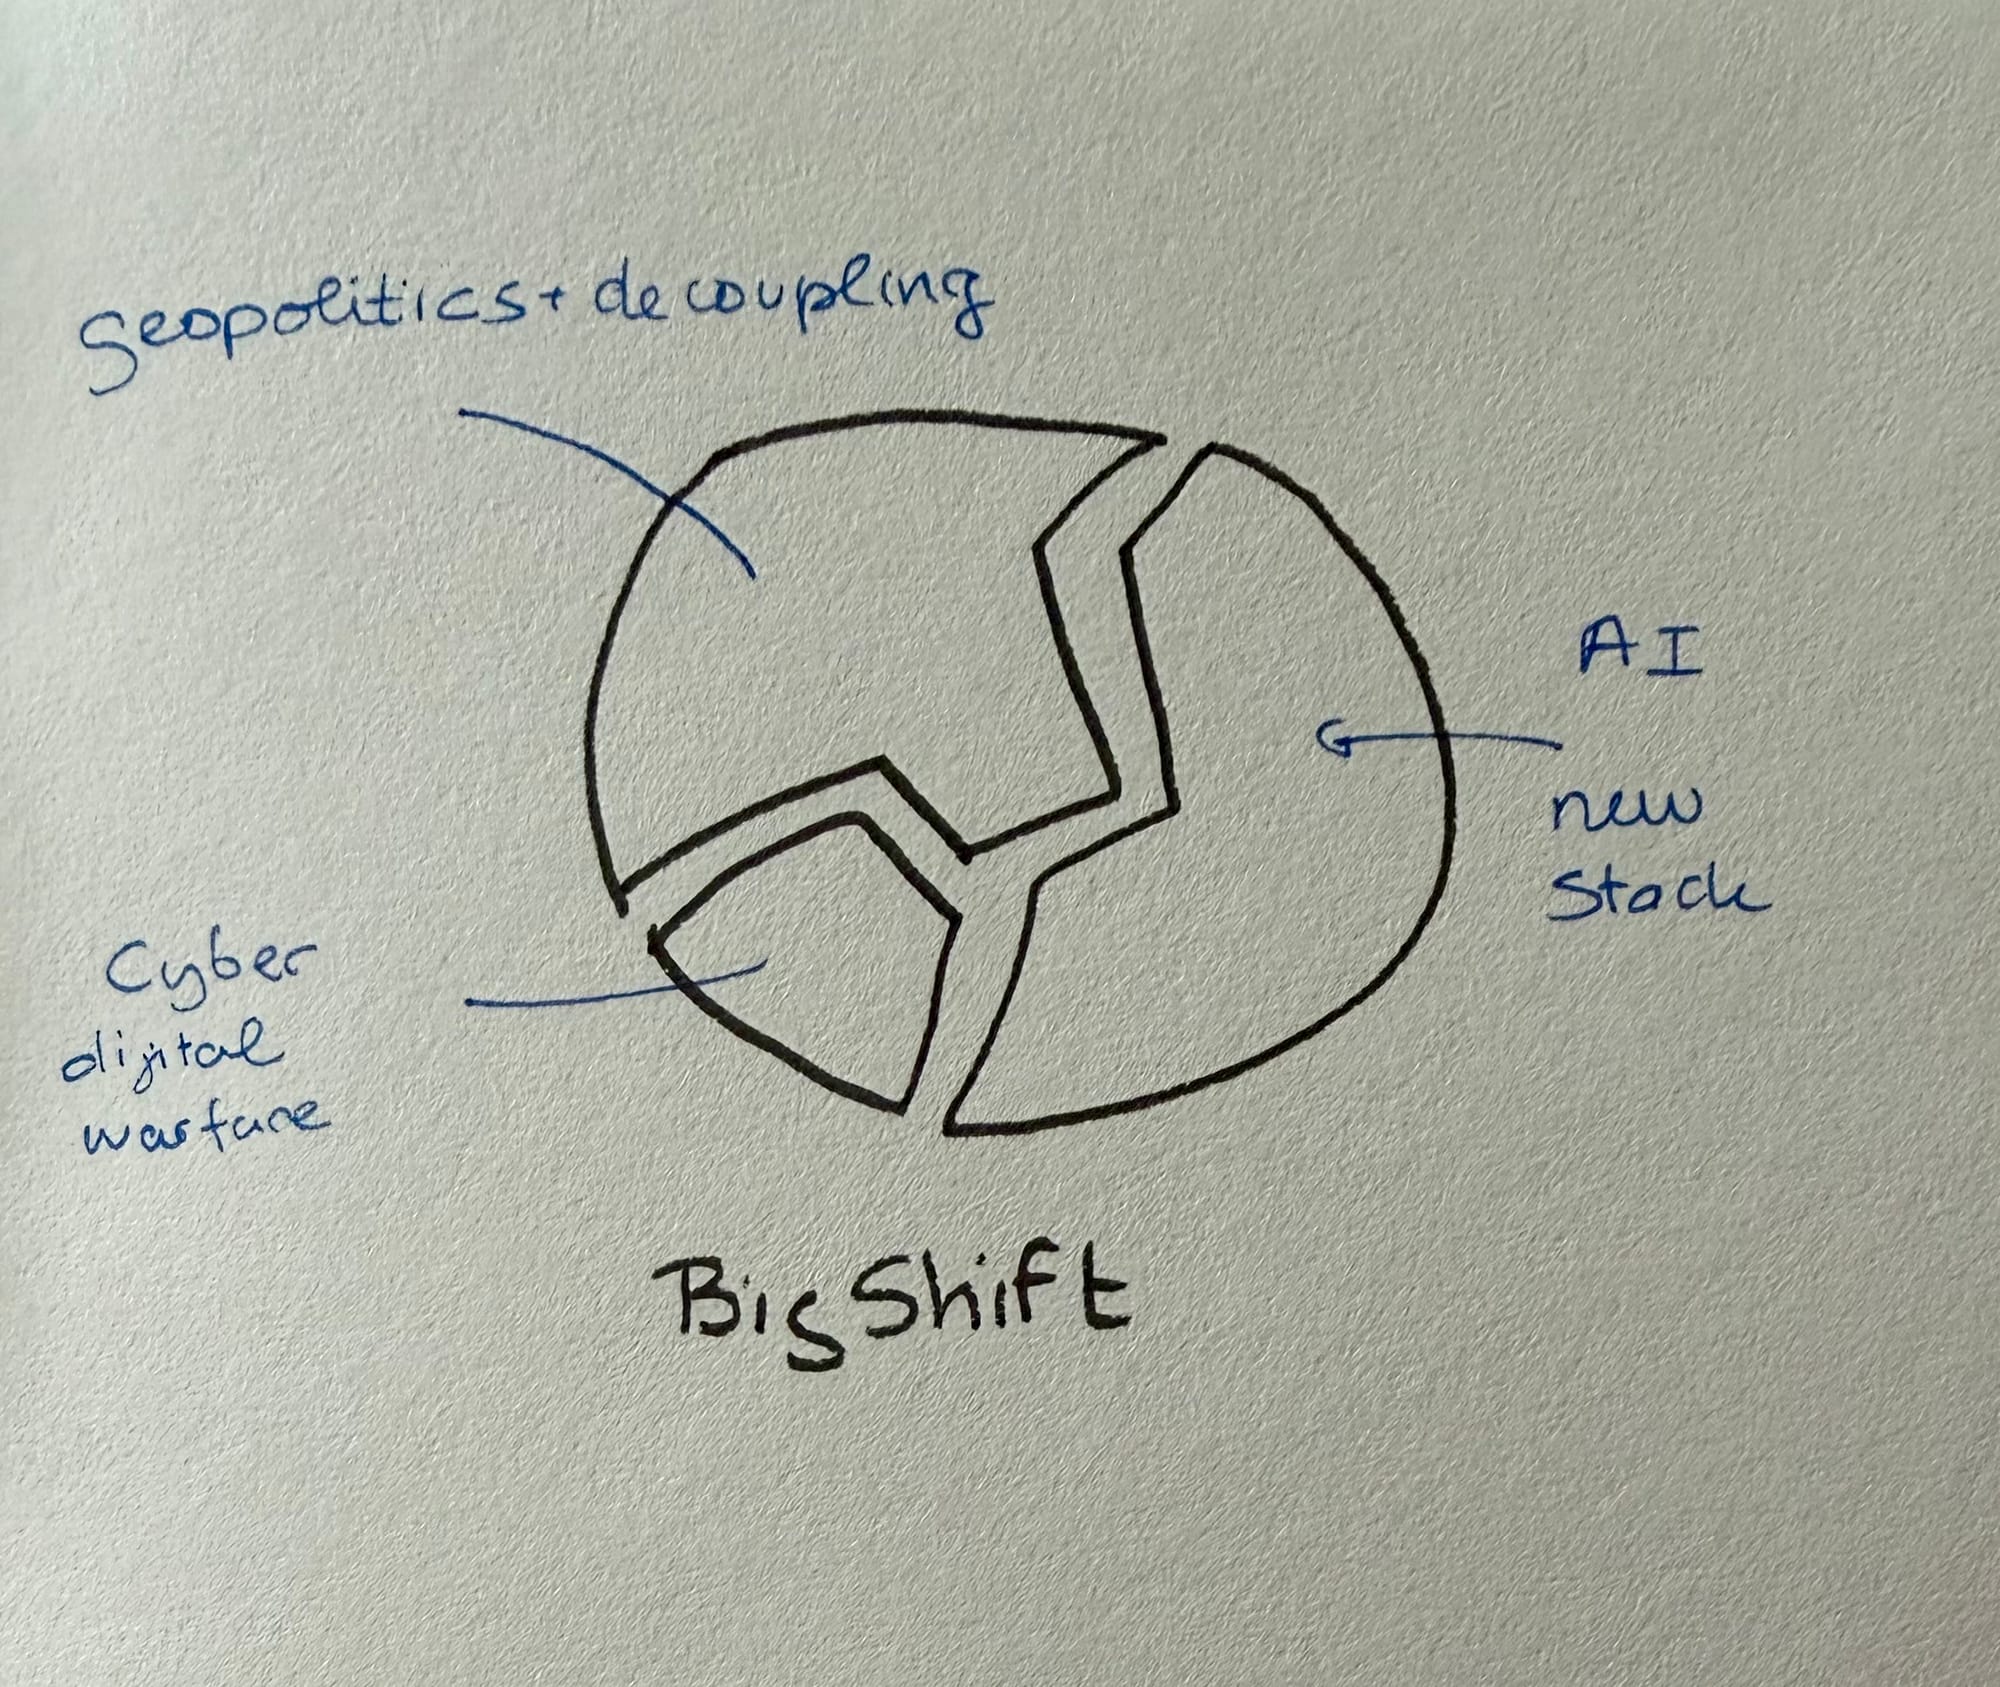 geopolitics + decoupling
AI
new
Stack
Cyber
digital
warfare
Big Shift